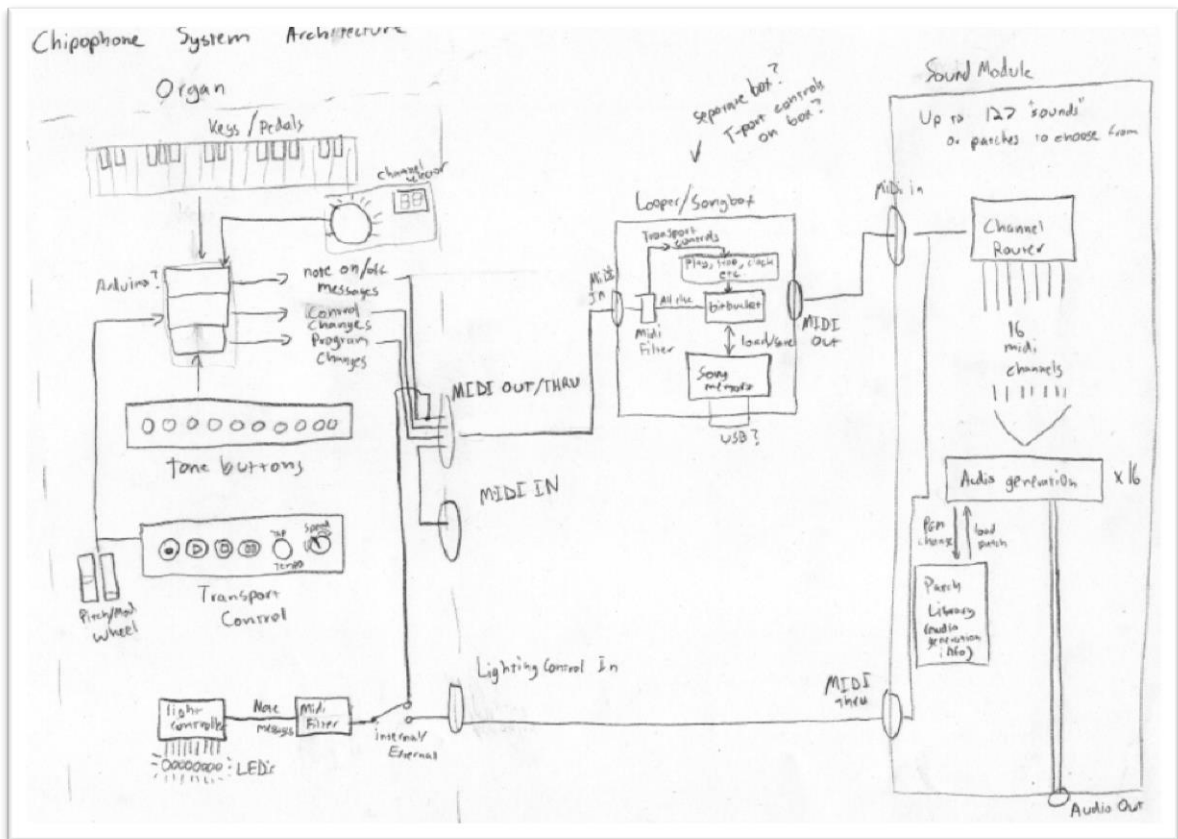 Chipophone System Architecture
Organ
Keys/Pedals
channel selector
Arduino?
note on/off
messages
Control
changes
Program
changes
tone buttons
TAP
Tempo
Speed
Transport
Control
Pitch/Mod
Wheel
light
controller
Note
messages
Midi
Filter
internal/
External
LED's
MIDI OUT/THRU
MIDI IN
Lighting Control In
separate box?
T-port controls
on box?
Looper/Songbox
Transport
controls
Play, stop, clock
etc.
Midi
In
All else
bitbucket
Midi
Filter
load/save
Song
memory
USB?
MIDI
OUT
Sound Module
Up to 127 "sounds"
or patches to choose from
Midi in
Channel
Router
16
midi
channels
Audio generation
x16
PGM
change
load
patch
Patch
Library
(audio
generation
info)
MIDI
thru
Audio Out